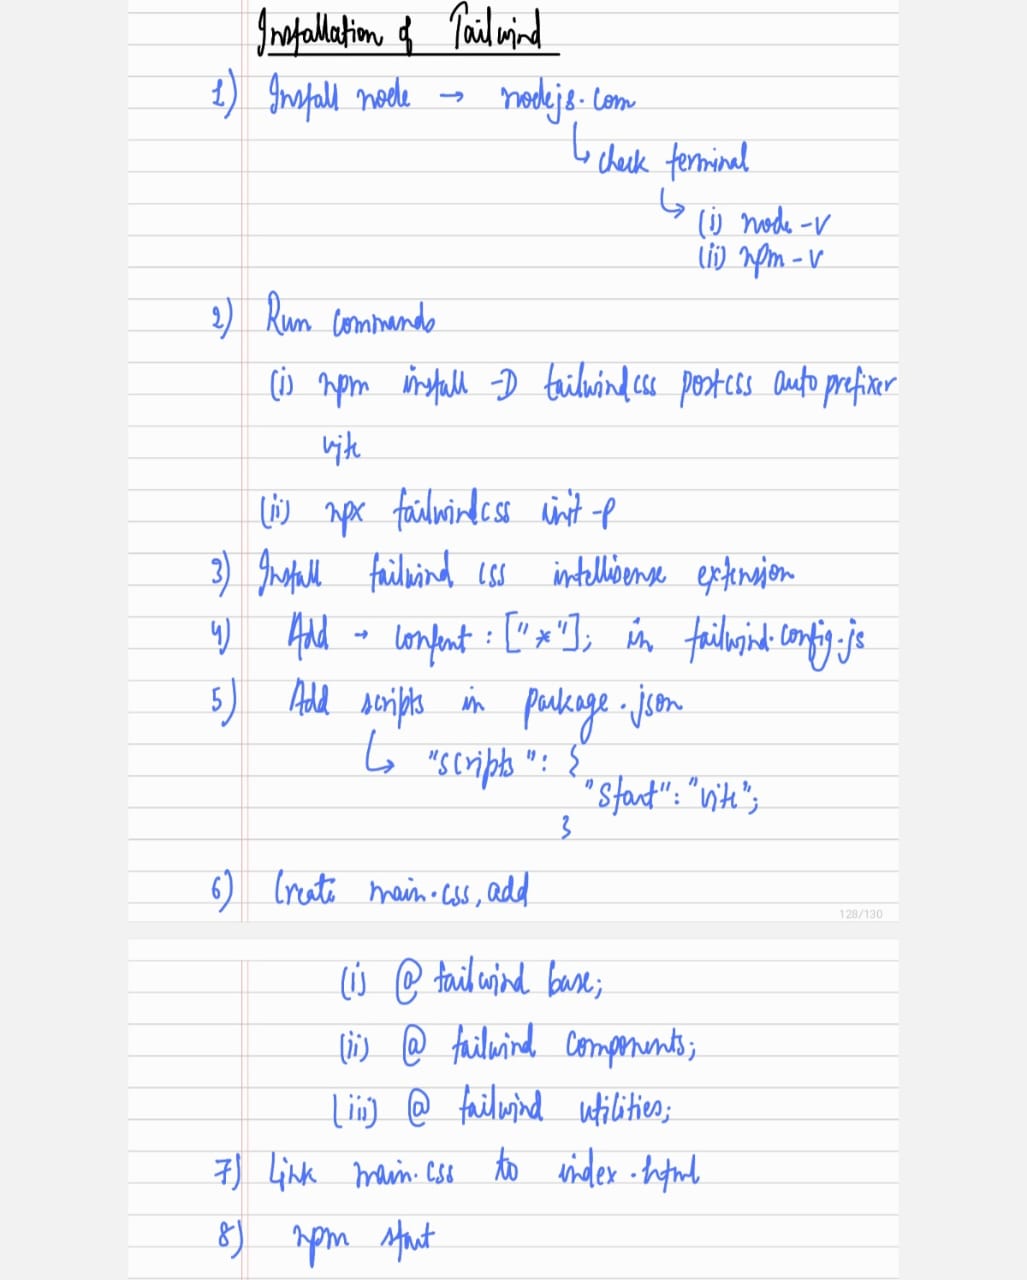 Installation of Tailwind
1) Install node → nodejs.com
↳ check terminal
↳ (i) node -v
(ii) npm -v
2) Run commands
(i) npm install -D tailwindcss postcss autoprefixer
vite
(ii) npx tailwindcss init -p
3) Install tailwind css intellisense extension
4) Add → content : ["*"]; in tailwind.config.js
5) Add scripts in package.json
↳ "scripts": {
"start": "vite";
}
6) Create main.css, add
128/130
(i) @ tailwind base;
(ii) @ tailwind components;
(iii) @ tailwind utilities;
7) Link main.css to index.html
8) npm start